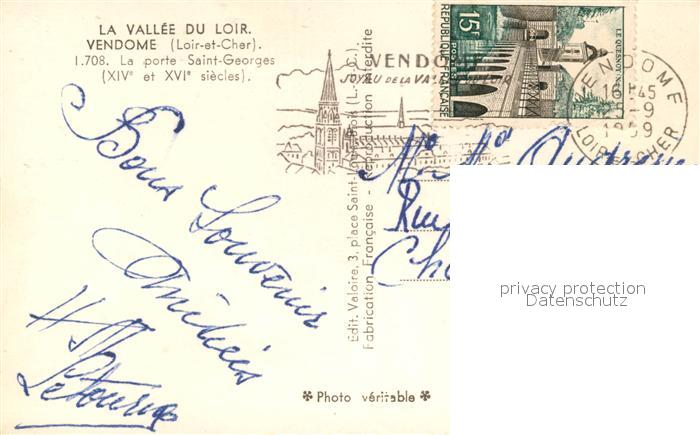 LA VALLÉE DU LOIR.
VENDOME (Loir-et-Cher).
1.708. La porte Saint-Georges
(XIVe et XVIe siècles).
VENDOME
JOYAU DE LA VALLEE DU LOIR
15F
REPUBLIQUE FRANÇAISE
POSTES
LE QUESNOY
VENDOME
16H45
-9
1959
LOIR ET CHER
Bons Souvenirs
Amitiés
Rue
privacy protection
Datenschutz
Edit. Valoire, 3, place Saint-
Fabrication Française - Reproduction interdite
✻ Photo véritable ✻